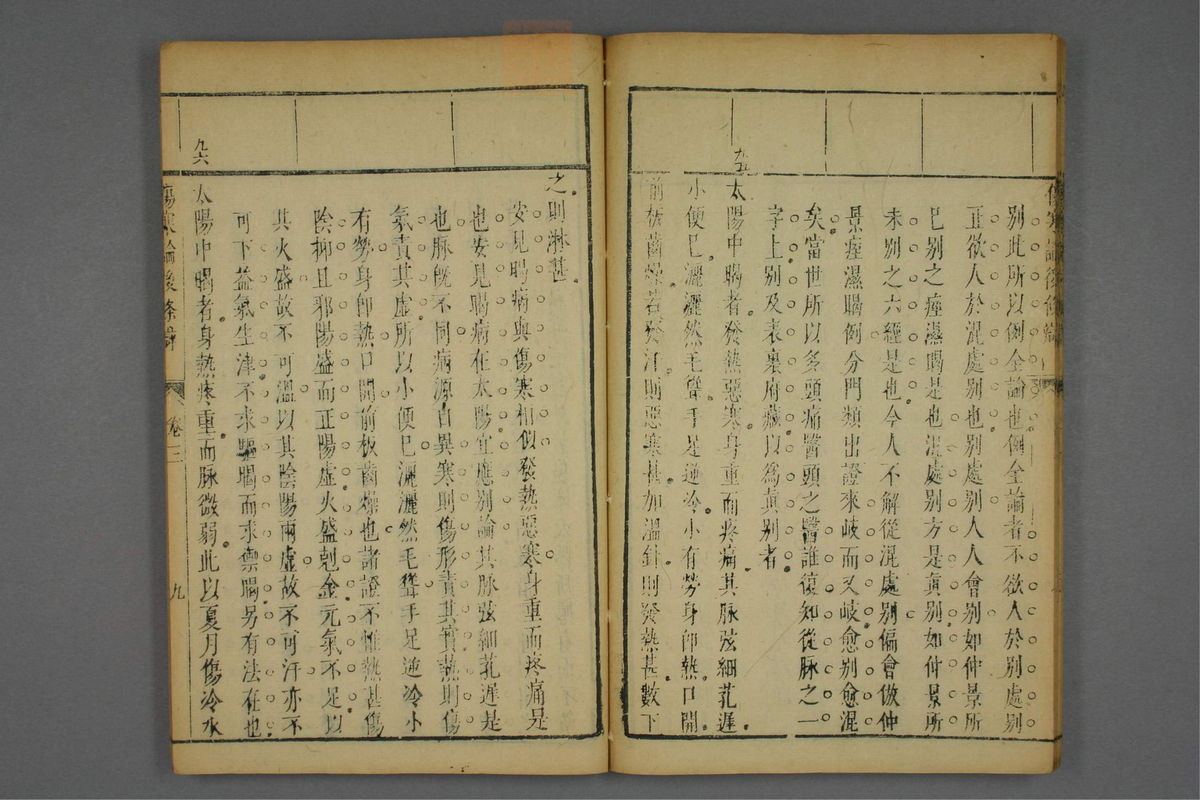 傷寒論後條辯
別此所以例全論也例全論者不欲人於別處別
正欲人於混處別也別處別人人會別如仲景所
已別之痙濕暍是也混處別方是真別如仲景所
未別之六經是也今人不解從混處別偏會倣仲
景痙濕暍例分門類出證來岐而又岐愈別愈混
矣當世所以多頭痛醫頭之醫誰復知從脉之一
字上別及表裏府藏以為真別者
九五
太陽中暍者發熱惡寒身重而疼痛其脉弦細芤遲
小便已灑灑然毛聳手足逆冷小有勞身即熱口開
前板齒燥若發汗則惡寒甚加溫針則發熱甚數下
之則淋甚
安見暍病與傷寒相似發熱惡寒身重而疼痛是
也安見暍病在太陽宜應別論其脉弦細芤遲是
也脉既不同病源自異寒則傷形責其實熱則傷
氣責其虛所以小便已灑灑然毛聳手足逆冷小
有勞身即熱口開前板齒燥也諸證不惟熱甚傷
陰抑且邪陽盛而正陽虛火盛剋金元氣不足以
其火盛故不可溫以其陰陽兩虛故不可汗亦不
可下益氣生津不求驅暍而求禦暍另有法在也
九六
太陽中暍者身熱疼重而脉微弱此以夏月傷冷水
傷寒論後條辯
卷三
九